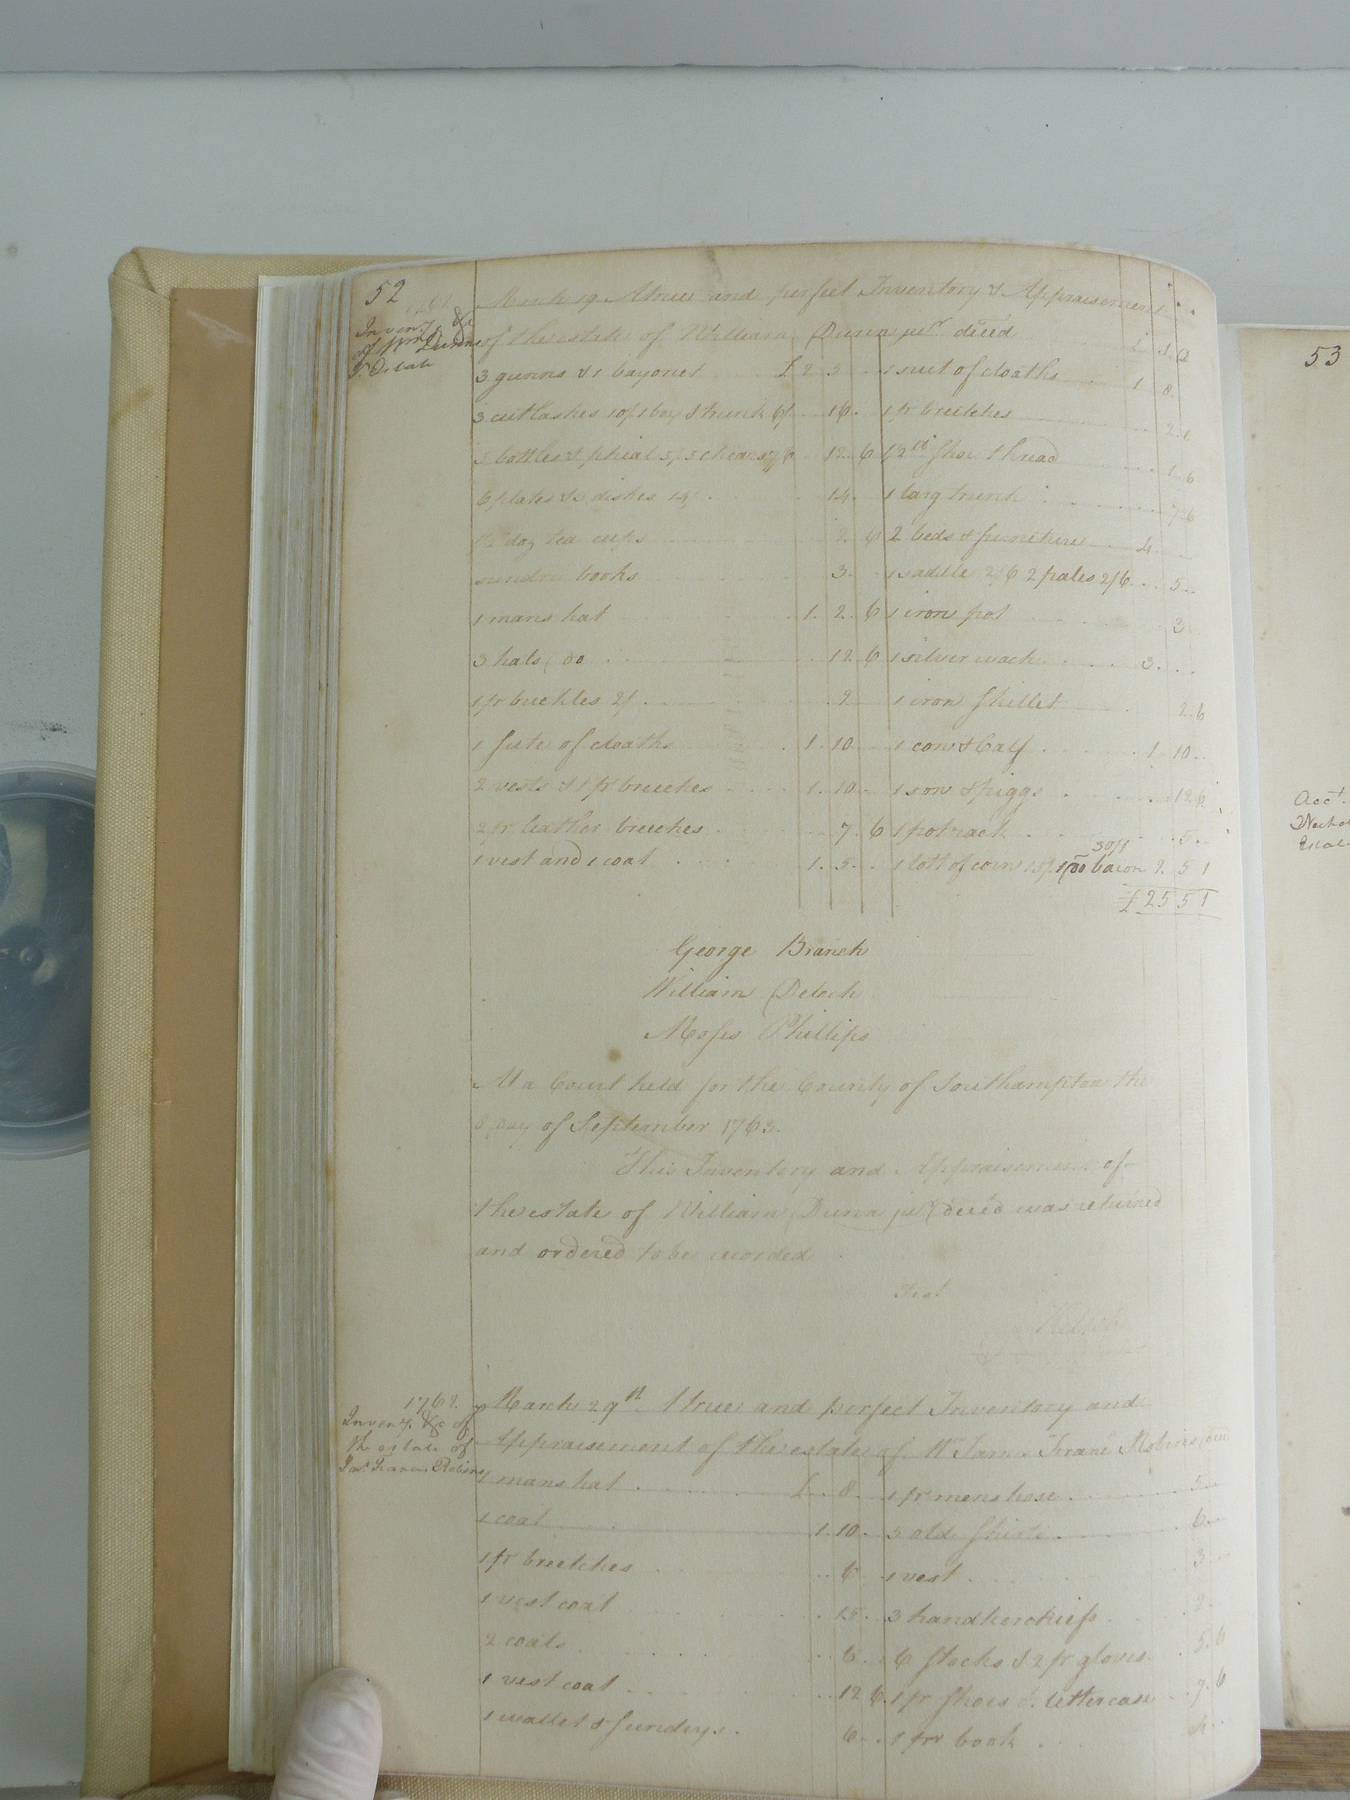 52
Inven.y &c
of Wm Dunns
Jr. Estate
March 19 A true and perfect Inventory & Appraisement
of the estate of William Dunn junr. decèd
£ S D
3 gunns & 1 bayonet £ 2 5 1 suit of cloaths 1 8
3 cutlashes 10/ 1 box & trunk 6/ 16 1 pr breeches 2 6
5 bottles & phial 5/ 5 chears 7/6 12 6 12 lb shoe thread 1 6
6 plates & 2 dishes 14/ 14 1 larg trunk 7 6
1/2 doz tea cups 2 6 2 beds & furniture 4
sundrie books 3 1 sadele 2/6 2 pales 2/6 5
1 mans hat 1 2 6 1 iron pot 3
3 hats do 12 6 1 silver wach 3
1 pr buckles 2/ 2 1 iron skillet 2 6
1 sute of cloaths 1 10 1 cow & calf 1 10
2 vests & 1 pr breeches 1 10 1 sow & piggs 12 6
2 pr leather breeches 7 6 1 potrack 5
30/1
1 vest and 1 coat 1 5 1 lott of corn 15/ 1 do bacon 2 5 1
£ 25 5 1
George Branch
William Deloch
Moses Phillips
At a Court held for the County of Southampton the
8 Day of September 1763.
This Inventory and Appraisement of
the estate of William Dunn junr decèd was returned
and ordered to be recorded
Test
1762.
Inven.y. &c of
the estate of
Jas. Francis Robins
March 29th A true and perfect Inventory and
Appraisement of the estate of Mr James Francis Robins
1 mans hat £ 8 1 pr mens hose 5
1 coat 1 10 3 old shirts 6
1 pr breetches 6 1 vest 3
1 vest coat 15 3 handkerchiefs 2
2 coats 6 6 stocks & 2 pr gloves 5 6
1 vest coat 12 6 1 pr shoes & lettercase 9 6
1 wallet & sundrys 6 1 book 4
53
Acct.
Estate